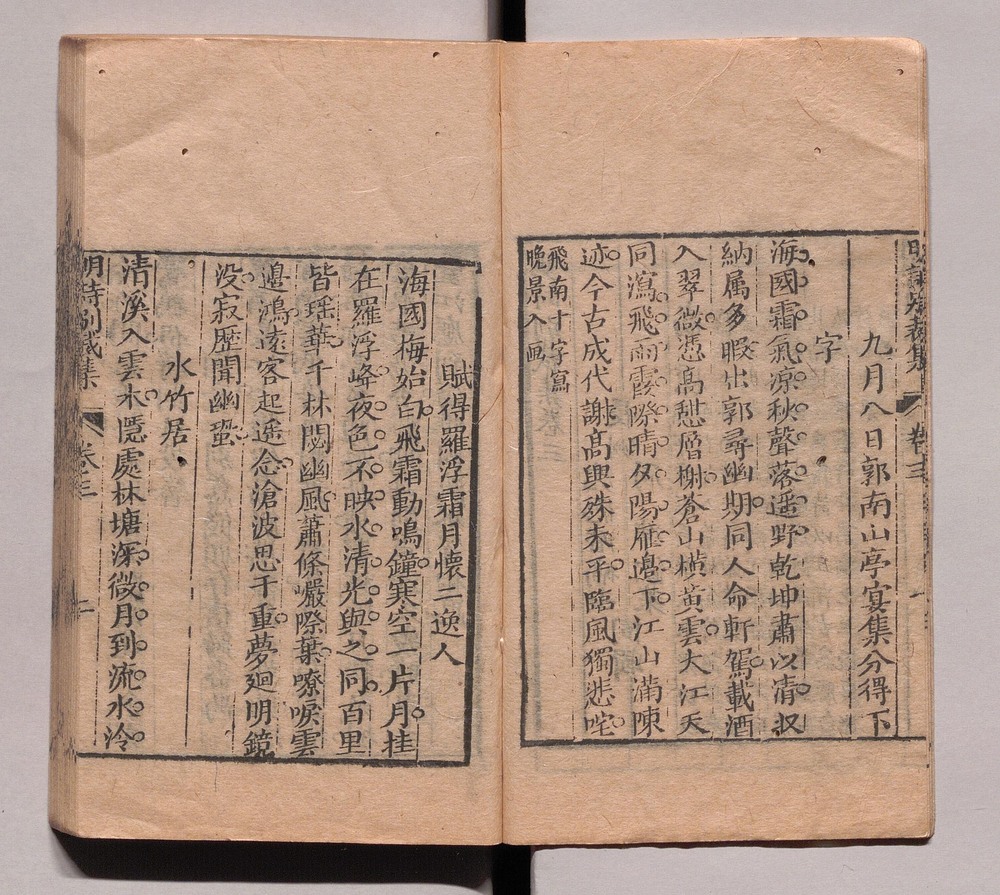 明詩別裁集 卷三 一
九月八日郭南山亭宴集分得下
字
海國霜氣涼秋聲落遥野乾坤肅以清収
納属多暇出郭尋幽期同人命軒駕載酒
入翠微憑高憇層榭蒼山橫黄雲大江天
同瀉飛雨霞際晴夕陽雁邊下江山滿陳
迹今古成代謝高興殊未平臨風獨悲咤
飛南十字寫
晚景入画
賦得羅浮霜月懷二逸人
海國梅始白飛霜動鳴鐘寒空一片月挂
在羅浮峰夜色不映水清光與之同百里
皆瑶華千林閟幽風蕭條巖際葉嘹唳雲
邉鴻遠客起遥念滄波思千重夢廻明鏡
没寂歷聞幽蛩
水竹居
清溪入雲木隱處林塘深微月到流水泠
明詩別裁集 卷三 二